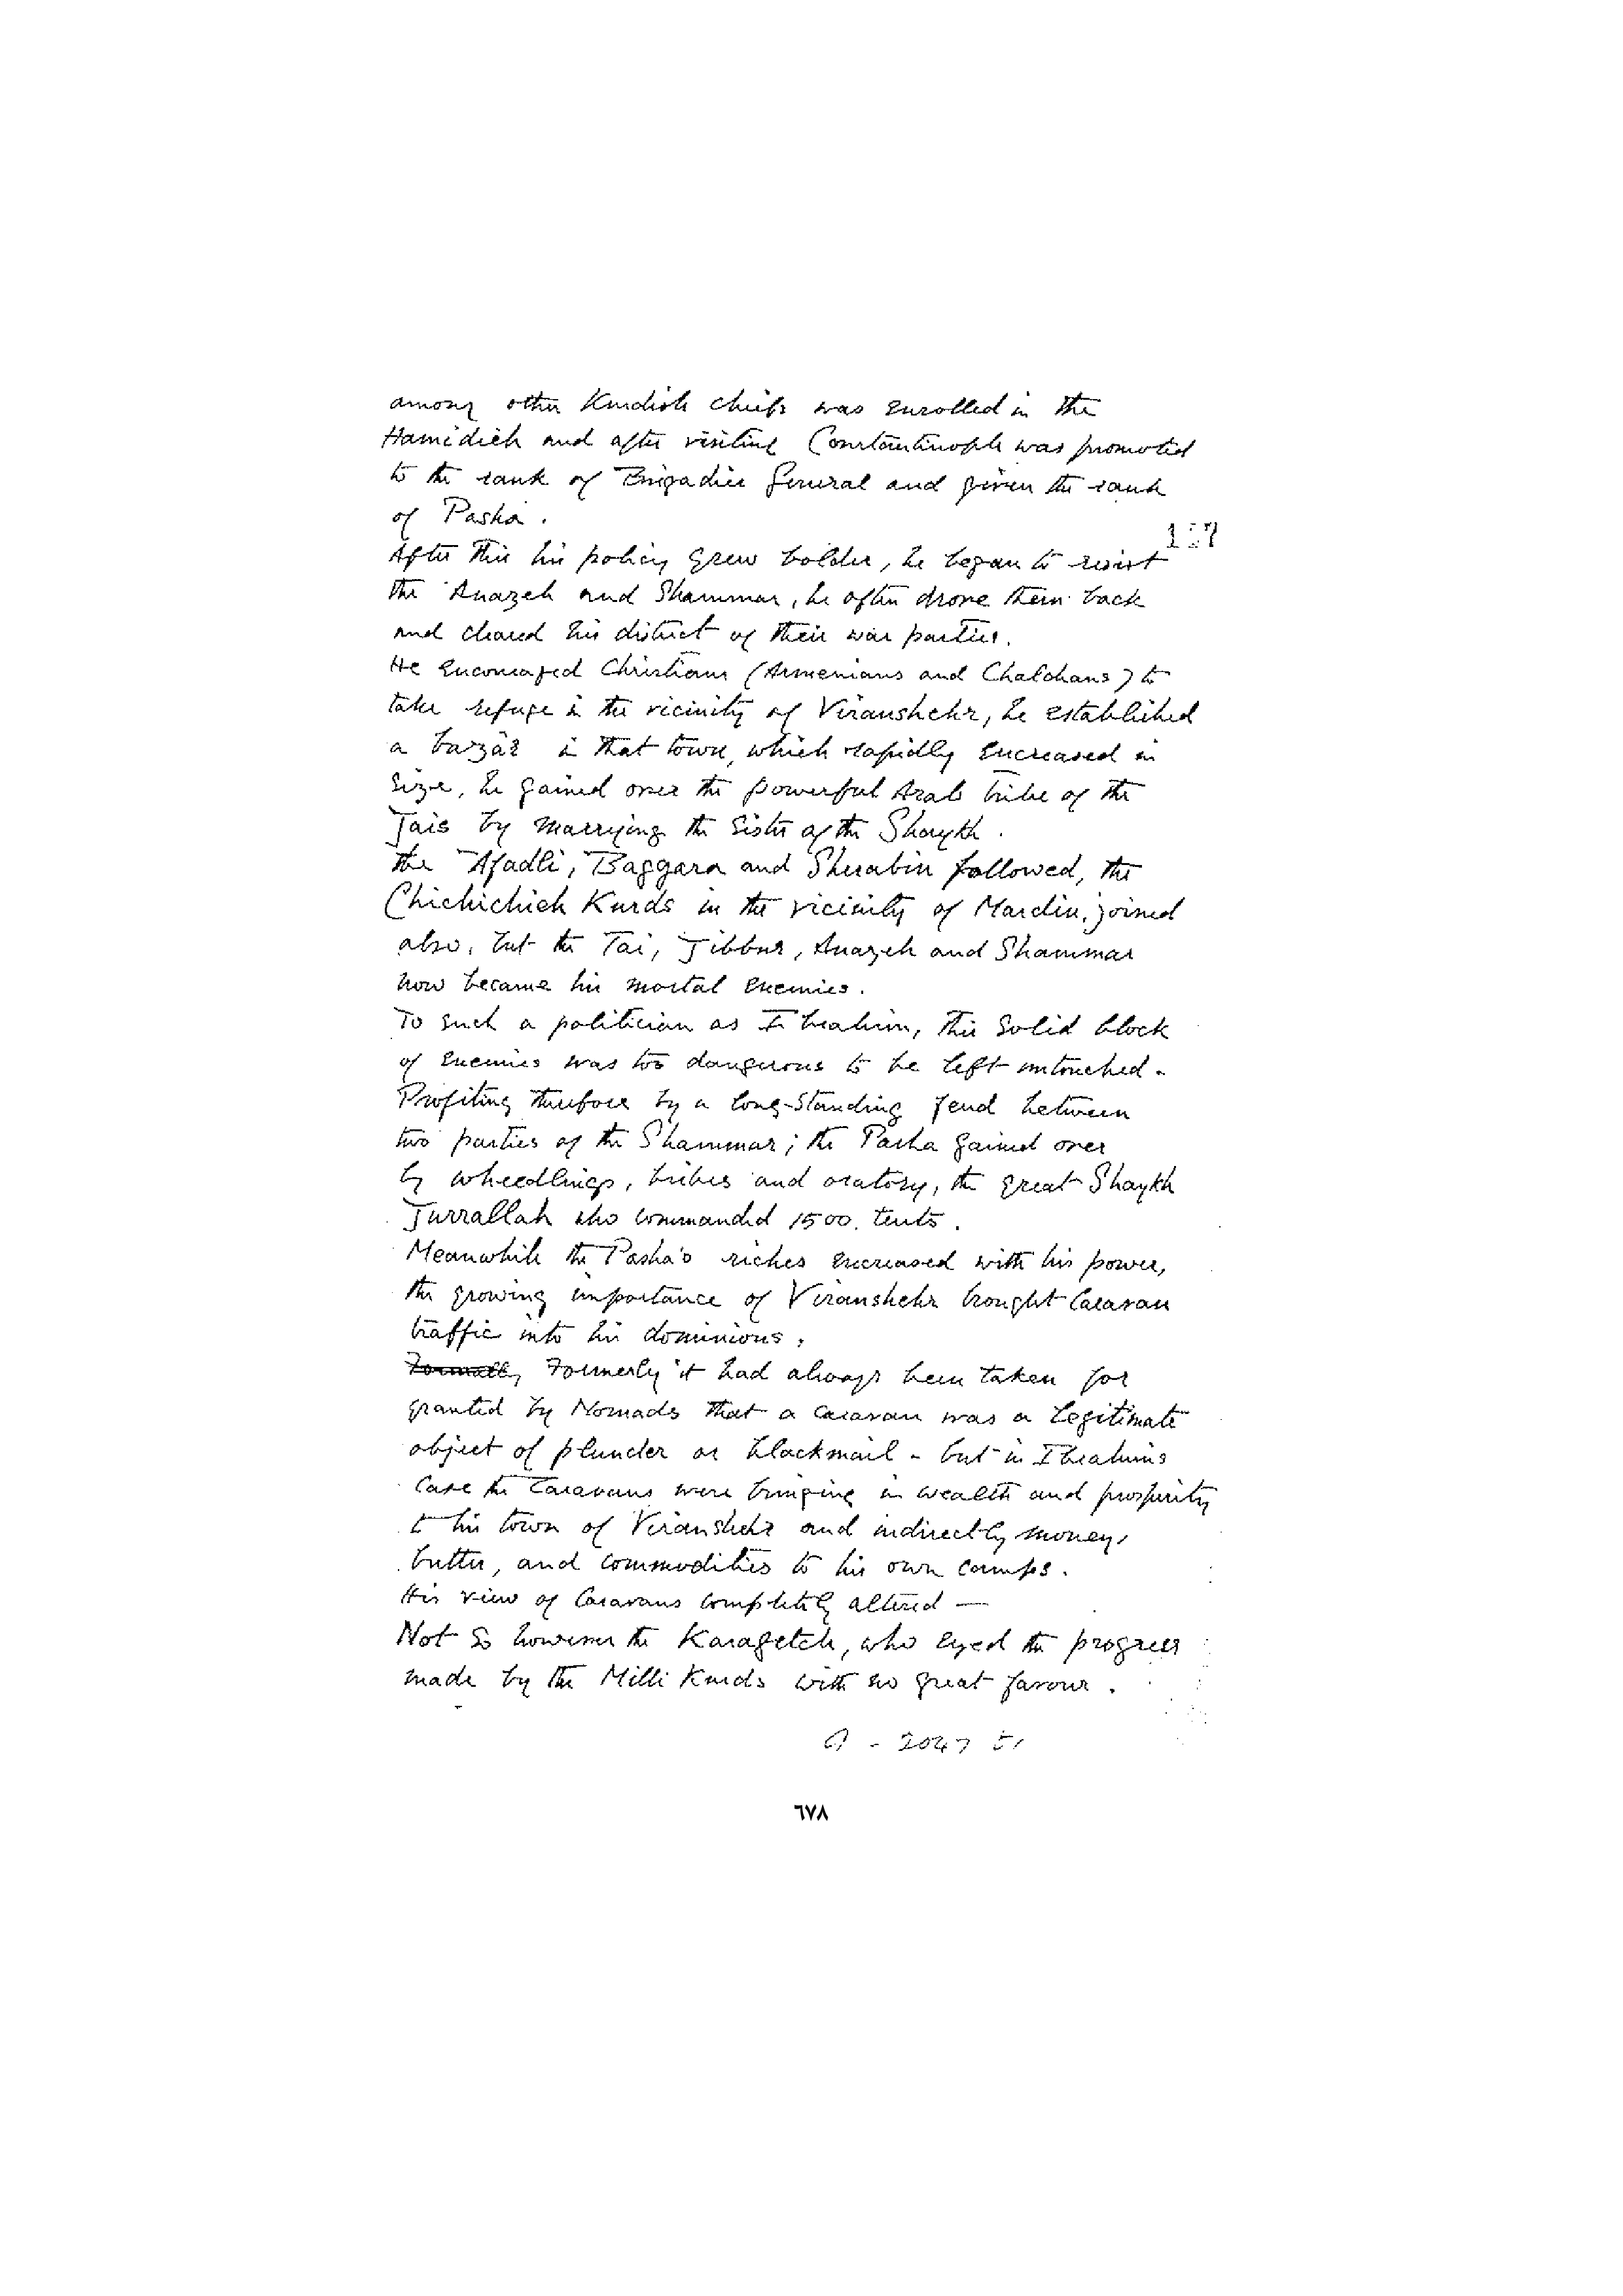 among other Kurdish chiefs was enrolled in the
Hamidieh and after visiting Constantinople was promoted
to the rank of Brigadier General and given the rank
of Pasha.
After this his policy grew bolder, he began to resist
the Anazeh and Shammar, he often drove them back
and cleared his district of their war parties.
He encouraged Christians (Armenians and Chaldeans) to
take refuge in the vicinity of Viranshehr, he established
a bazâr in that town, which rapidly encreased in
size, he gained over the powerful Arab tribe of the
Jais by marrying the sister of the Shaykh.
the Afadli, Baggara and Sherabin followed, the
Chichichieh Kurds in the vicinity of Mardin, joined
also, but the Tai, Jibbur, Anazeh and Shammar
now became his mortal enemies.
To such a politician as Ibrahim, this solid block
of enemies was too dangerous to be left untouched -
Profiting therefore by a long-standing feud between
two parties of the Shammar; the Pasha gained over
by wheedlings, bribes and oratory, the great Shaykh
Jarrallah who commanded 1500 tents.
Meanwhile the Pasha's riches encreased with his power,
the growing importance of Viranshehr brought Caravan
traffic into his dominions.
Formerly it had always been taken for
granted by Nomads that a caravan was a legitimate
object of plunder or blackmail - but in Ibrahims
case the Caravans were bringing in wealth and prosperity
to his town of Viranshehr and indirectly money,
butter, and commodities to his own camps.
His view of Caravans completely altered —
Not so however the Karagetch, who eyed the progress
made by the Milli Kurds with no great favour.
- 2047
٦٧٨